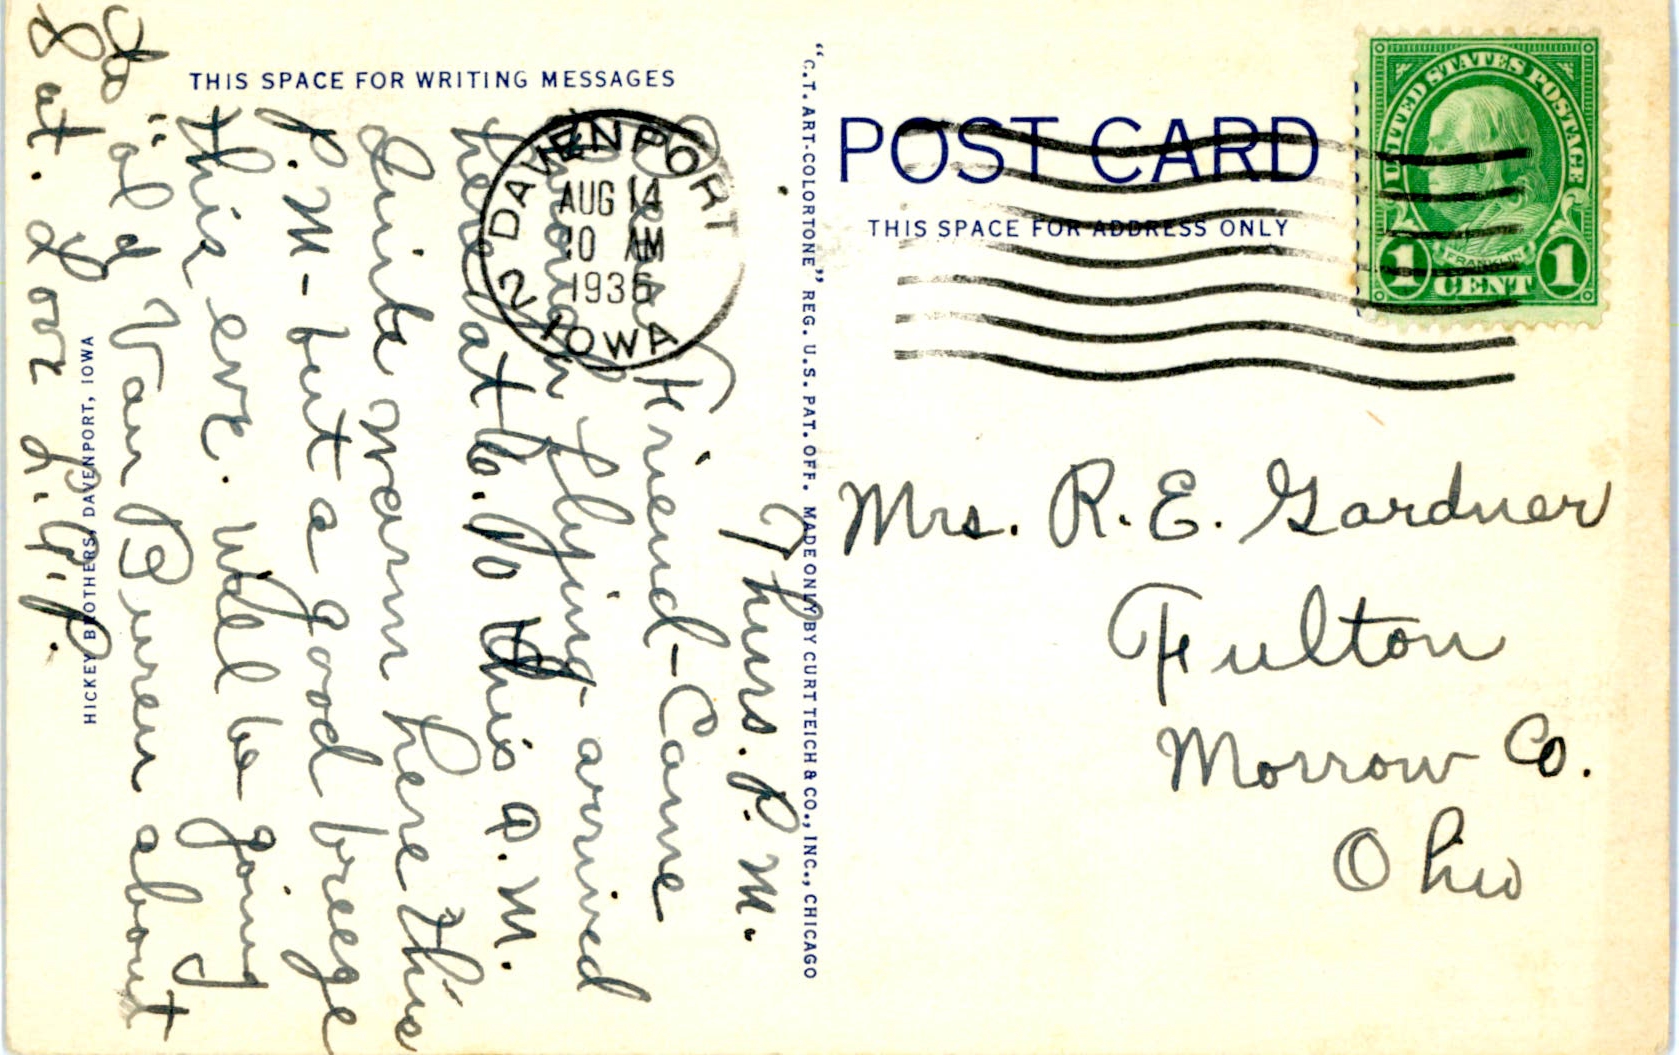 THIS SPACE FOR WRITING MESSAGES
Thurs. P. M.
Dear Friend - Came
flying - arrived
here at this A. M.
Quite warm here this
P. M - but a good breeze
this eve. Will be going
to "old Van Buren about
Sat. Love
HICKEY BROTHERS, DAVENPORT, IOWA
DAVENPORT
AUG 14
10 AM
1936
2 IOWA
"C.T. ART-COLORTONE" REG. U.S. PAT. OFF. MADE ONLY BY CURT TEICH & CO., INC., CHICAGO
POST CARD
THIS SPACE FOR ADDRESS ONLY
UNITED STATES POSTAGE
FRANKLIN
1 CENT 1
Mrs. R. E. Gardner
Fulton
Morrow Co.
Ohio